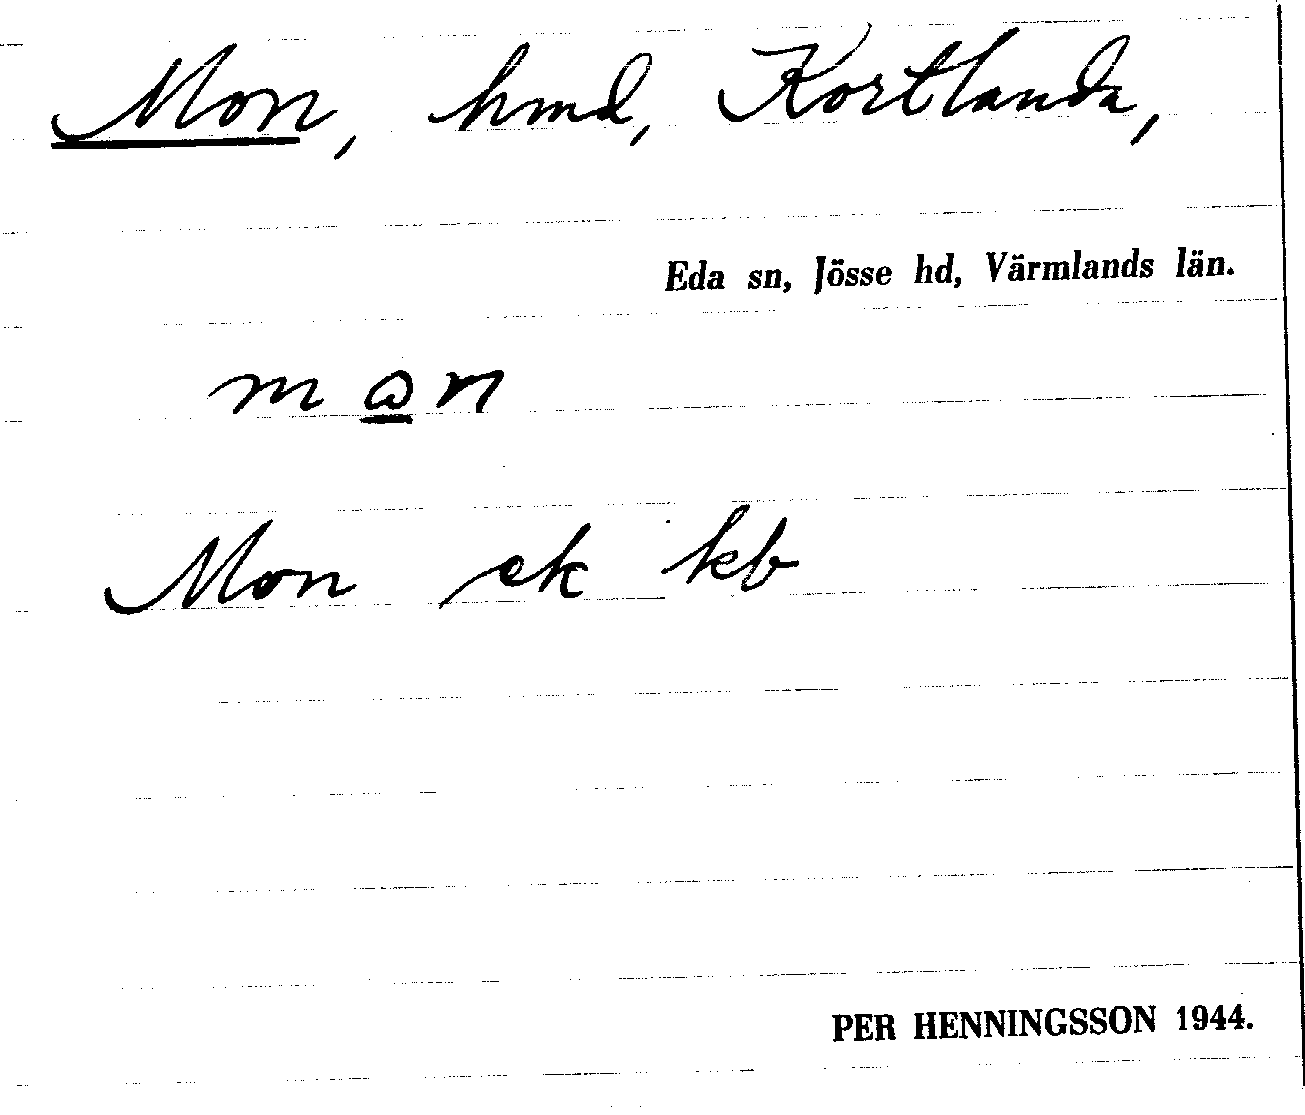 Mon, hmd, Kortlanda,
Eda sn, Jösse hd, Värmlands län.
mon
Mon ek kb
PER HENNINGSSON 1944.